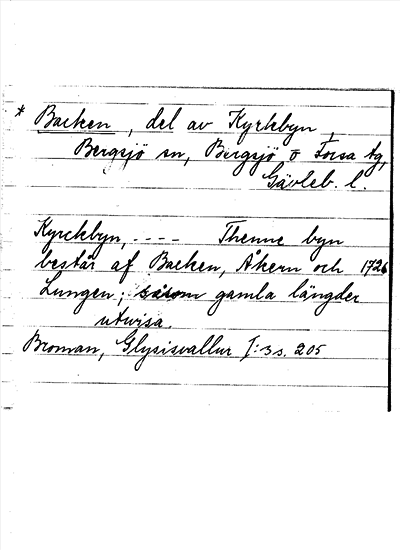 * Backen, del av Kyrkbyn,
Bergsjö sn, Bergsjö o Forsa tg,
Gävleb. l.
Kyrckbyn, ---- Thenne byn
består af Backen, Åkern och 1726
Lungen; såsom gamla längder
utwisa.
Broman, Glysisvallur I:3 s. 205